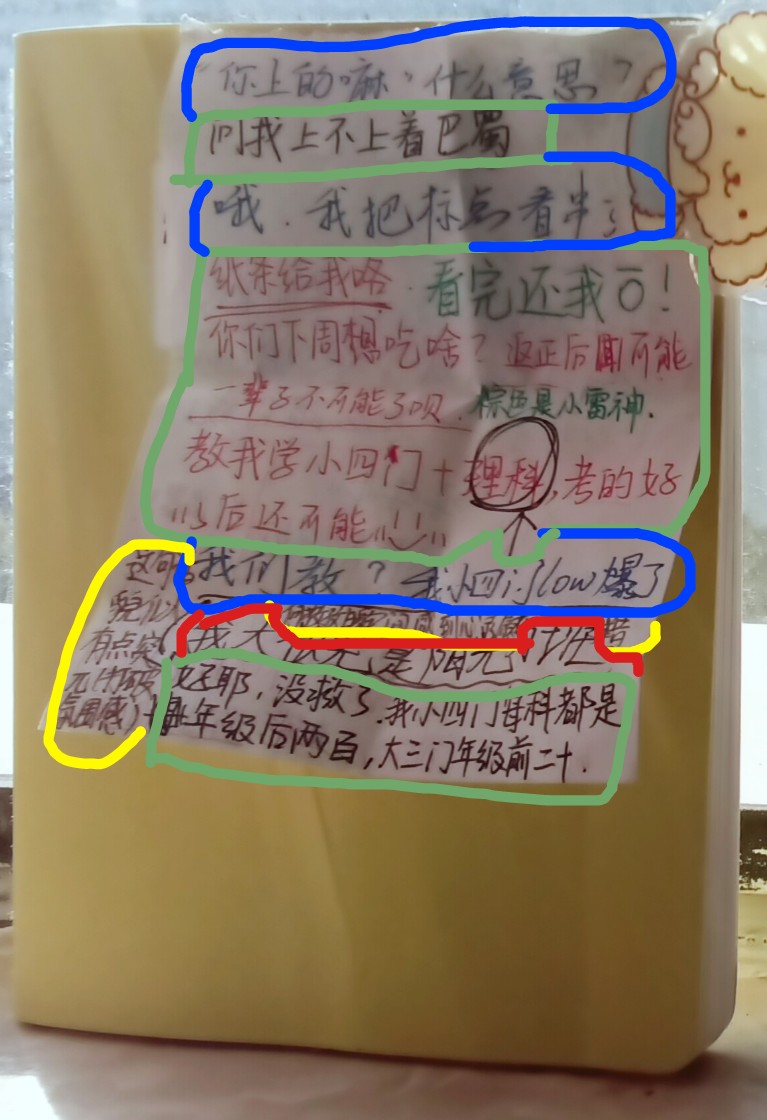 "你上的嘛,什么意思?
问我上不上着巴蜀
哦.我把标点看串了
纸条给我咯.看完还我ō!
你们下周想吃啥?返正后面不可能
一辈子不可能了呗.棕色是小雷神.
教我学小四门+理科,考的好
以后还可能
我们教?我小四门low爆了
这句
貌似
有点突
兀(打破
氛围感)
还耶,没救了.我小四门每科都是
年级后两百,大三门年级前二十.